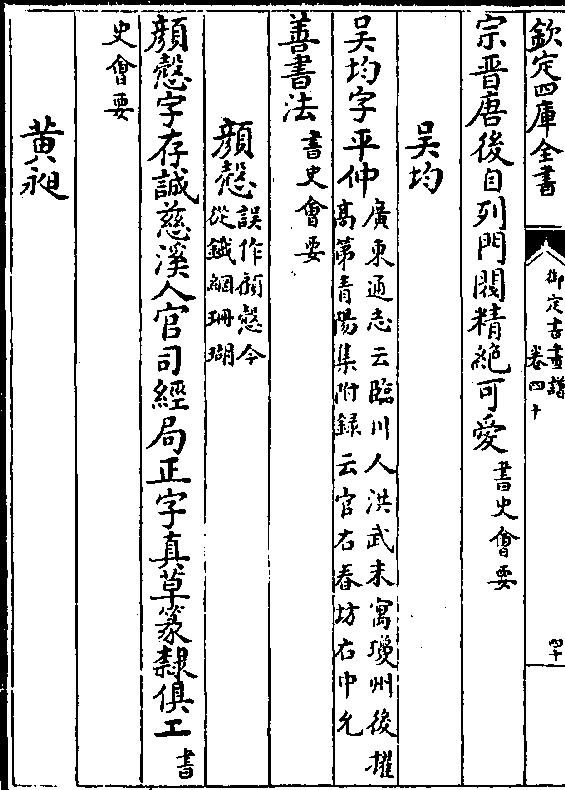 欽定四庫全書
御定書畫譜
卷四十
四十
宗晉唐後自列門閥精絶可愛書史會要
吴均
吴均字平仲廣東通志云臨川人洪武末寓瓊州後擢
高第青陽集附録云官右春坊右中允
善書法書史會要
顔慤誤作顧慤今
從鐵網珊瑚
顔慤字存誠慈溪人官司經局正字真草篆隸俱工書
史會要
黄昶